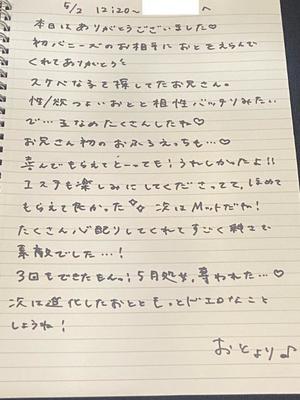 5/2 12:20～ へ
本日はありがとうございました♡
初バニーズのお相手におとをえらんで
くれてありがとう
スケベな子で探してたお兄さん。
性欲つよいおとと相性バッチリみたい
で…玉なめたくさんしたね♡
お兄さん初のおふろえっちも…♡
喜んでもらえてとーっても！うれしかったよ!!
エステも楽しみにしてくださってて、ほめて
もらえて良かった 次はMットだね！
たくさん心配りしてくれてすごく紳士で
素敵でした…！
3回もできたもんっ！5月処女、奪われた…♡
次は進化したおとともっとドエロなこと
しようね！
おとより♪